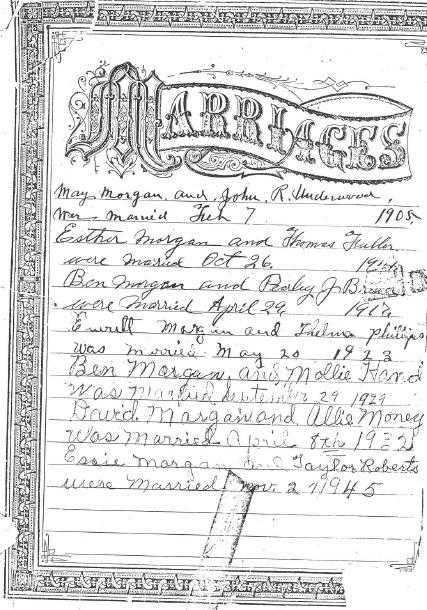 MARRIAGES
May Morgan and John R. Underwood,
was married Feb 7 1905
Esther Morgan and Thomas Fuller
were married Oct 26,
Ben Morgan and Pearley J
were married April 29,
Ewell Morgan and Thelma Phillips
was married May 20 1923
Ben Morgan and Mollie Hand
Was Married September 29 1929
David Morgan and Allie Money
Was Married April 8th 1932
Essie Morgan and Taylor Roberts
were Married Nov. 2 1945